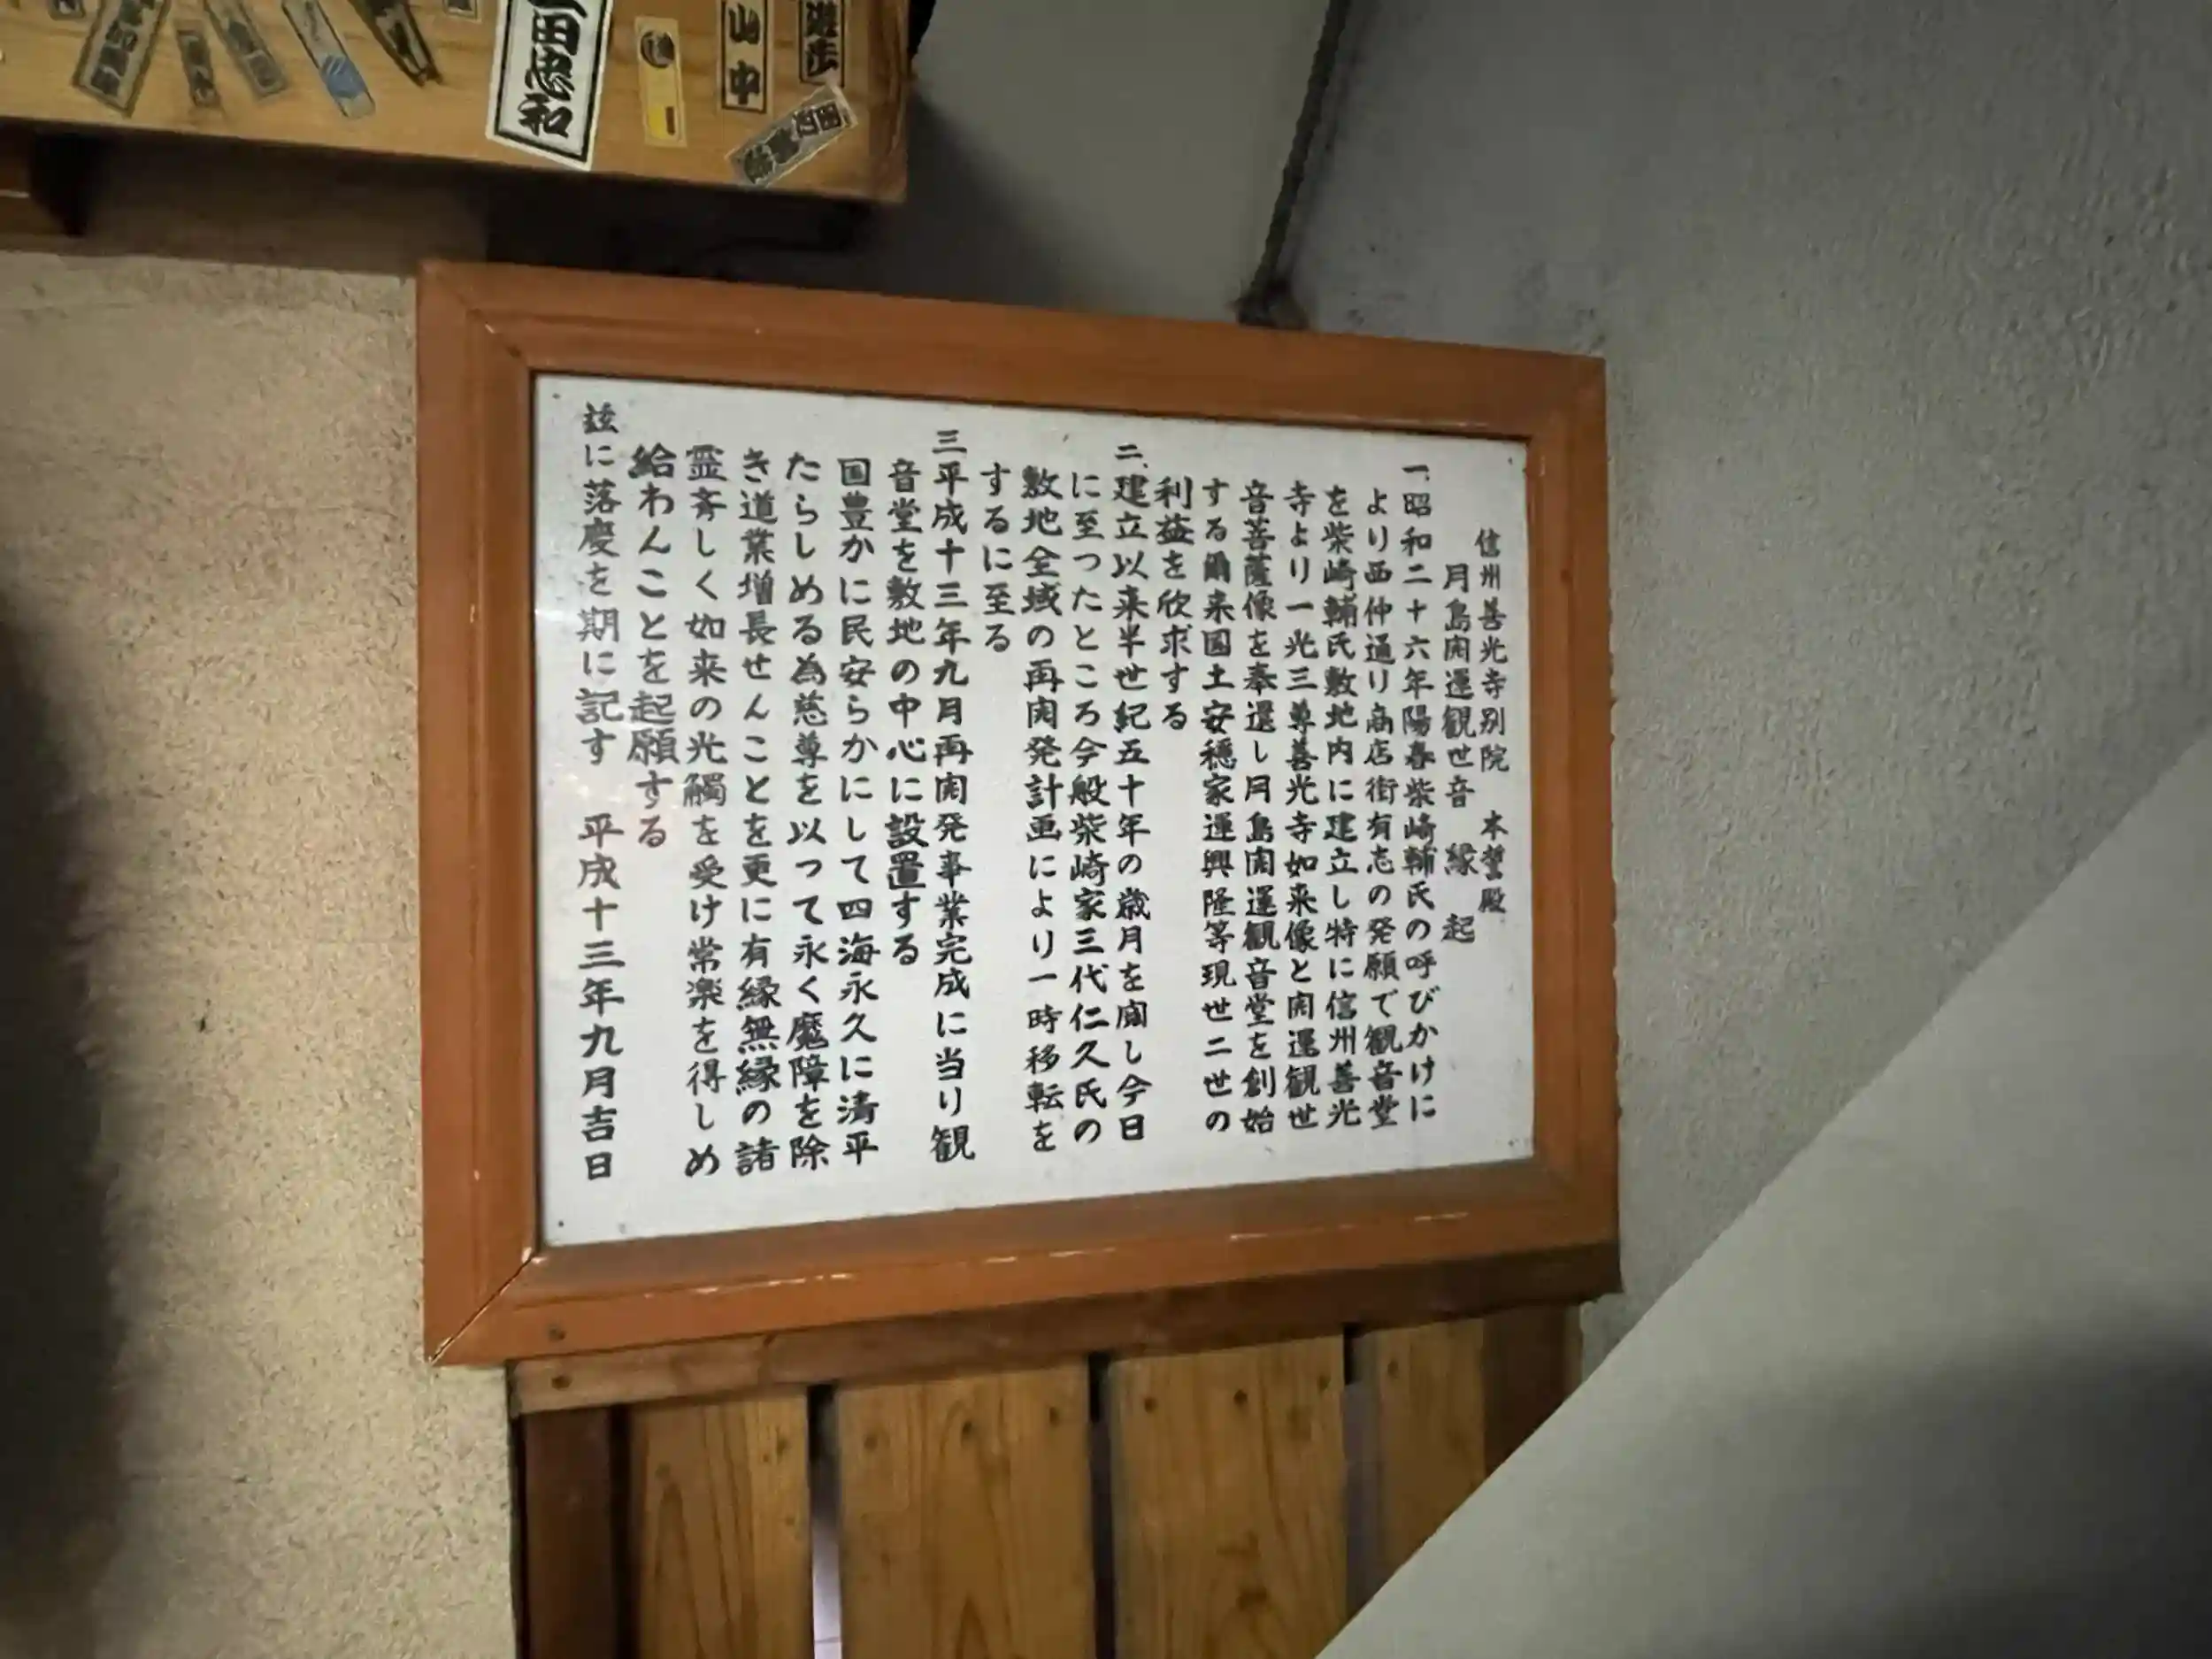 信州善光寺別院　本誓殿
月島開運観世音　縁　起
一、昭和二十六年陽春柴崎輔氏の呼びかけに
より西仲通り商店街有志の発願で観音堂
を柴崎輔氏敷地内に建立し特に信州善光
寺より一光三尊善光寺如来像と開運観世
音菩薩像を奉還し月島開運観音堂を創始
する爾来国土安穏家運興隆等現世二世の
利益を欣求する
二、建立以来半世紀五十年の歳月を閲し今日
に至ったところ今般柴崎家三代仁久氏の
敷地全域の再開発計画により一時移転を
するに至る
三平成十三年九月再開発事業完成に当り観
音堂を敷地の中心に設置する
国豊かに民安らかにして四海永久に清平
たらしめる為慈尊を以って永く魔障を除
き道業増長せんことを更に有縁無縁の諸
霊斉しく如来の光觸を受け常楽を得しめ
給わんことを起願する
玆に落慶を期に記す　平成十三年九月吉日
山中
遊歩
田忠和